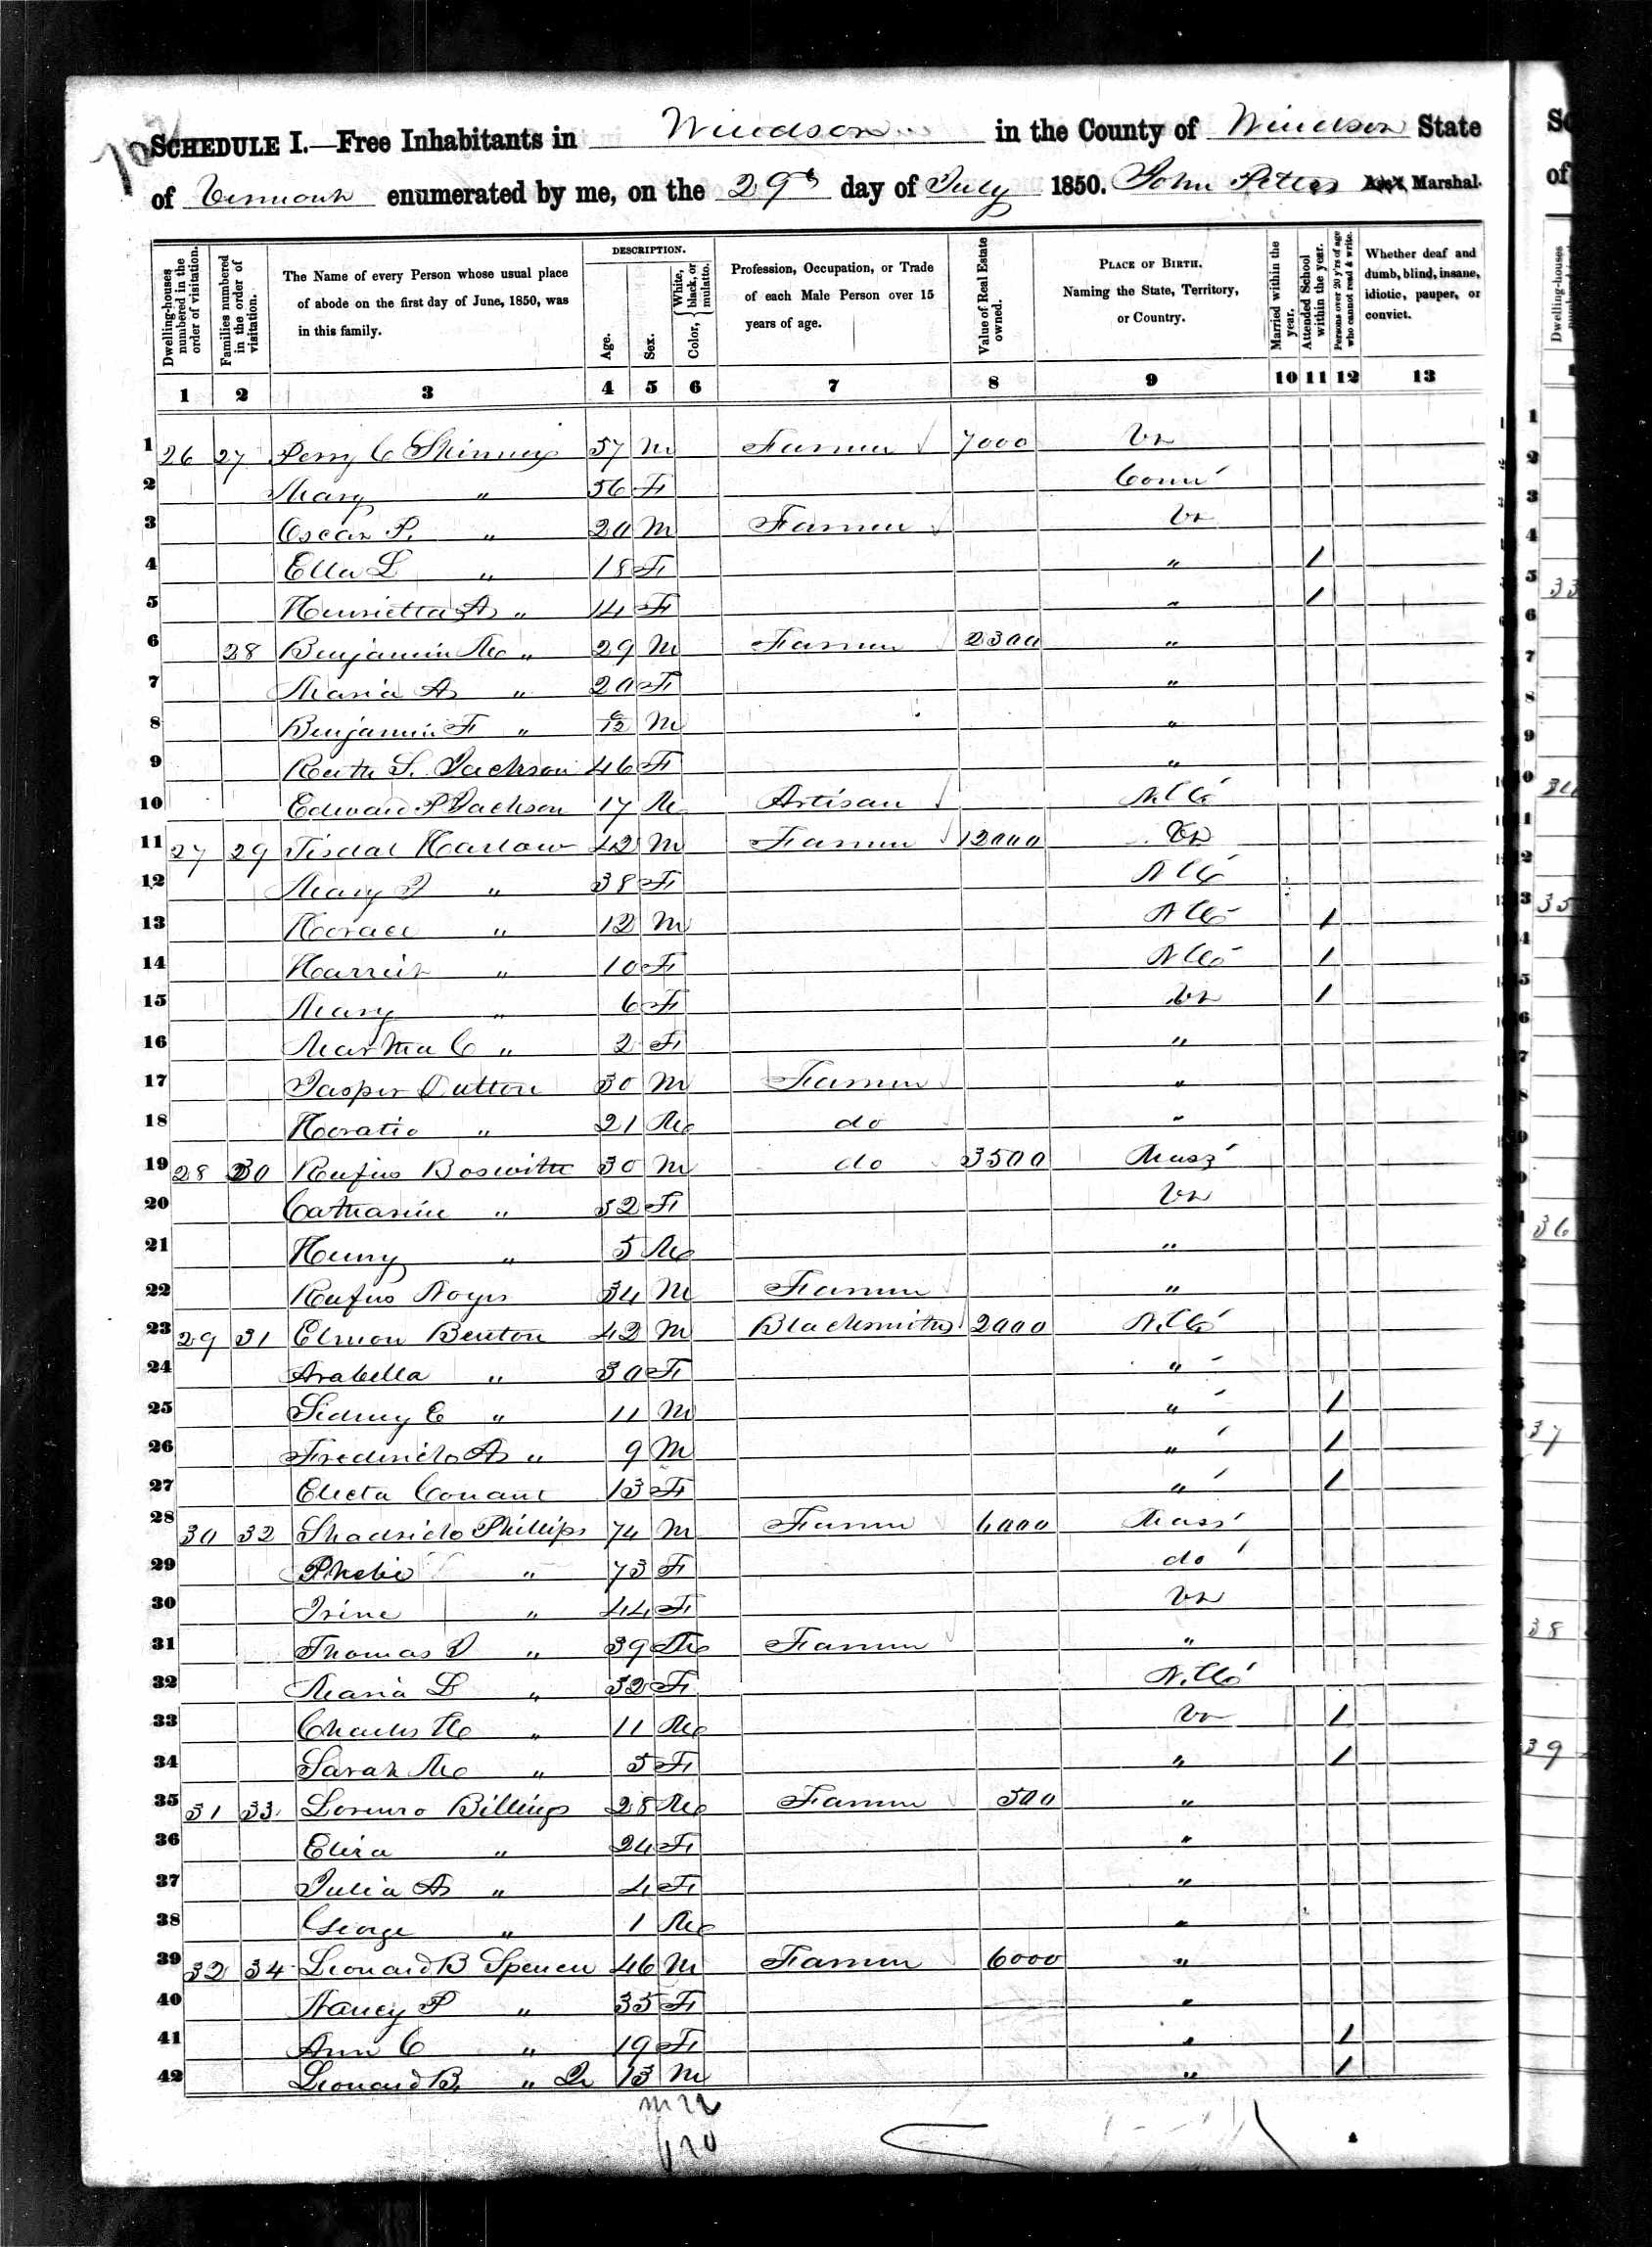 SCHEDULE I.—Free Inhabitants in Windsor in the County of Windsor State
of Vermont enumerated by me, on the 29th day of July 1850. John Pettes Ass't Marshal.
Dwelling-houses numbered in the order of visitation.
Families numbered in the order of visitation.
The Name of every Person whose usual place of abode on the first day of June, 1850, was in this family.
DESCRIPTION.
Age.
Sex.
Color, { White, black, or mulatto.
Profession, Occupation, or Trade of each Male Person over 15 years of age.
Value of Real Estate owned.
PLACE OF BIRTH. Naming the State, Territory, or Country.
Married within the year.
Attended School within the year.
Persons over 20 y'rs of age who cannot read & write.
Whether deaf and dumb, blind, insane, idiotic, pauper, or convict.
1 2 3 4 5 6 7 8 9 10 11 12 13
1 26 27 Perry C Skinner 57 M Farmer 7000 Vt
2 Mary " 56 F Conn
3 Oscar P. " 20 M Farmer Vt
4 Ella L " 18 F " 1
5 Henrietta A " 14 F " 1
6 28 Benjamin M " 29 M Farmer 2300 "
7 Maria A " 20 F "
8 Benjamin F " M "
9 Ruth S. Jackson 46 F "
10 Edward P Jackson 17 M Artisan
11 27 29 Tisdal Harlow 42 M Farmer 12000 Vt
12 Mary D " 38 F N H
13 Horace " 12 M N H 1
14 Harriet " 10 F N H 1
15 Mary " 6 F Vt 1
16 Martha C " 2 F "
17 Jasper Dutton 30 M Farmer "
18 Horatio " 21 M do "
19 28 30 Rufus Boswith 30 M do 3500 Mass
20 Catharine " 52 F Vt
21 Henry " 5 M "
22 Rufus Noyes 34 M Farmer "
23 29 31 Elmon Benton 42 M Blacksmith 2000 N. H
24 Arabella " 30 F "
25 Sidney E " 11 M " 1
26 Frederick A " 9 M " 1
27 Electa Conant 13 F " 1
28 30 32 Shadrick Phillips 74 M Farmer 6000 Mass
29 Phebe " 73 F do
30 Irine " 44 F Vt
31 Thomas D " 39 M Farmer "
32 Maria L " 32 F N. H
33 Charles H " 11 M Vt 1
34 Sarah M " 5 F " 1
35 31 33 Lorenzo Billings 28 M Farmer 500 "
36 Eliza " 24 F "
37 Julia A " 4 F "
38 George " 1 M "
39 32 34 Leonard B Spencer 46 M Farmer 6000 "
40 Nancy P " 35 F "
41 Ann C " 19 F " 1
42 Leonard B. " Jr 13 M " 1
m 22
f 20
33
34
35
36
37
38
39